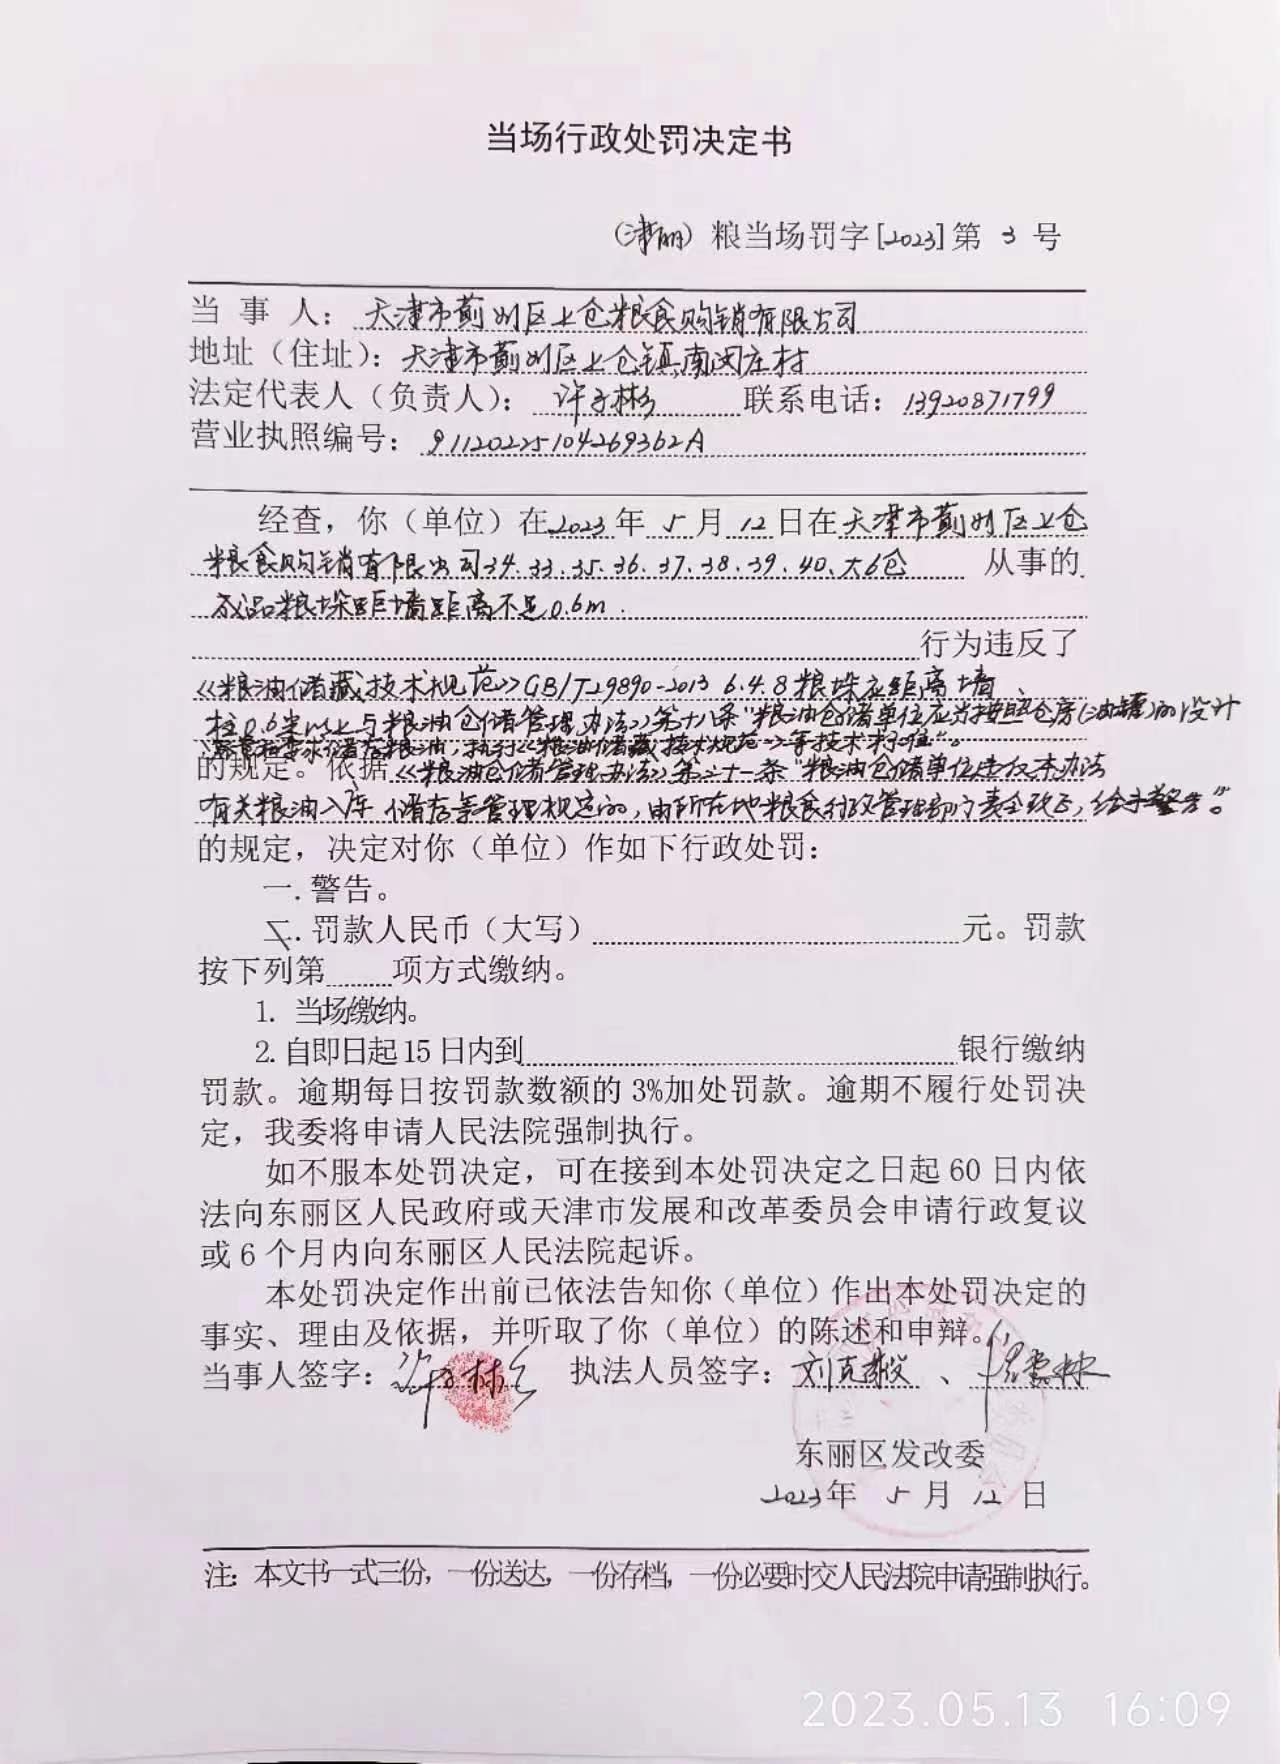 当场行政处罚决定书
（津丽）粮当场罚字[2023]第 3 号
当 事 人：天津市蓟州区上仓粮食购销有限公司
地址（住址）：天津市蓟州区上仓镇南闵庄村
法定代表人（负责人）：许子彬 联系电话：13920871799
营业执照编号：91120225104269362A
经查，你（单位）在2023年 5 月 12 日在天津市蓟州区上仓
粮食购销有限公司34.33.35.36.37.38.39.40.大6仓 从事的
成品粮垛距墙距离不足0.6m.
行为违反了
《粮油储藏技术规范》GB/T29890-2013 6.4.8粮垛应距离墙、
柱0.6米以上与《粮油仓储管理办法》第十八条“粮油仓储单位应当按照仓房（油罐）的设计
储存粮油，执行《粮油储藏技术规范》等技术标准”。
的规定。依据《粮油仓储管理办法》第三十一条“粮油仓储单位违反本办法
有关粮油入库、储存等管理规定的，由所在地粮食行政管理部门责令改正，给予警告”。
的规定，决定对你（单位）作如下行政处罚：
一.警告。
二.罚款人民币（大写） 元。罚款
按下列第 项方式缴纳。
1. 当场缴纳。
2.自即日起15日内到 银行缴纳
罚款。逾期每日按罚款数额的 3%加处罚款。逾期不履行处罚决
定，我委将申请人民法院强制执行。
如不服本处罚决定，可在接到本处罚决定之日起 60 日内依
法向东丽区人民政府或天津市发展和改革委员会申请行政复议
或 6 个月内向东丽区人民法院起诉。
本处罚决定作出前已依法告知你（单位）作出本处罚决定的
事实、理由及依据，并听取了你（单位）的陈述和申辩。
当事人签字：许子彬 执法人员签字：刘克毅 、
东丽区发改委
2023年 5 月 12 日
注：本文书一式三份，一份送达，一份存档，一份必要时交人民法院申请强制执行。
2023.05.13 16:09